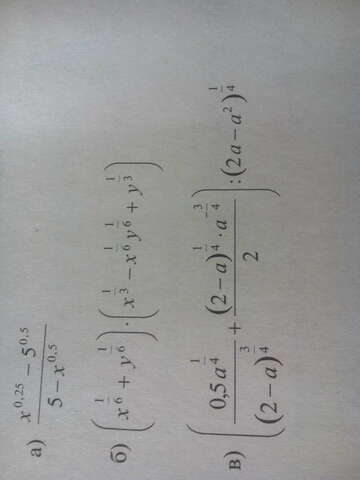 а) \frac{x^{0,25} - 5^{0,5}}{5 - x^{0,5}}
б) \left(x^{\frac{1}{6}} + y^{\frac{1}{6}}\right) \cdot \left(x^{\frac{1}{3}} - x^{\frac{1}{6}} y^{\frac{1}{6}} + y^{\frac{1}{3}}\right)
в) \left(\frac{0,5a^{\frac{1}{4}}}{(2-a)^{\frac{3}{4}}} + \frac{(2-a)^{\frac{1}{4}} \cdot a^{-\frac{3}{4}}}{2}\right) : (2a - a^2)^{\frac{1}{4}}